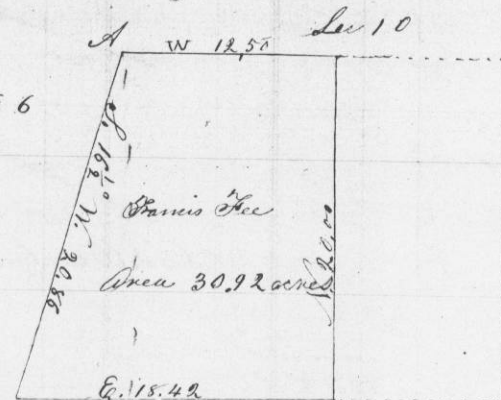 A
W 12,50
Sec 10
6
S. 16½° W. 20,86
Francis Fee
Area 30.92 acres
N. 20,00
E. 18.42